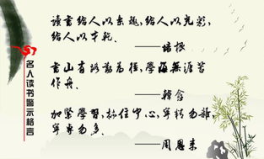 读书给人以乐趣,给人以光彩,
给人以才干。
——培根
书山有路勤为径,学海无涯苦
作舟。
——韩愈
加紧学习,抓住中心,宁精勿杂,
宁专勿多。
——周恩来
名人读书警示格言